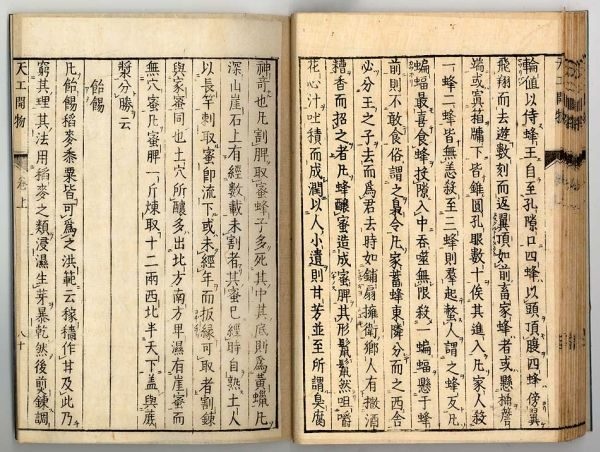 輪值以侍蜂王自至孔隙口四蜂以頭頂腹四蜂傍翼
飛翔而去遊數刻而返翼頂如前畜家蜂者或懸桶簷
端或寘箱牖下皆錐圓孔眼數十俟其進入凡家人殺
一蜂二蜂皆無恙殺至三蜂則羣起螫人謂之蜂反凡
蝙蝠最喜食蜂投隙入中吞噬無限殺一蝙蝠懸于蜂
前則不敢食俗謂之梟令凡家蓄蜂東隣分而之西舍
必分王之子去而爲君去時如鋪扇擁衛鄉人有撒酒
糟香而招之者凡蜂釀蜜造成蜜脾其形鬣鬣然咀嚼
花心汁吐積而成潤以人小遺則甘芳並至所謂臭腐
神奇也凡割脾取蜜蜂子多死其中其底則爲黃蠟凡
深山崖石上有經數載未割者其蜜已經時自熟土人
以長竿刺取蜜卽流下或未經年而扳緣可取者割鍊
與家蜜同也土穴所釀多出北方南方卑濕有崖蜜而
無穴蜜凡蜜脾一斤煉取十二兩西北半天下蓋與蔗
漿分勝云
飴餳
凡飴餳稻麥黍粟皆可爲之洪範云稼穡作甘及此乃
窮其理其法用稻麥之類浸濕生芽暴乾然後煎鍊調
天工開物
卷上
八十